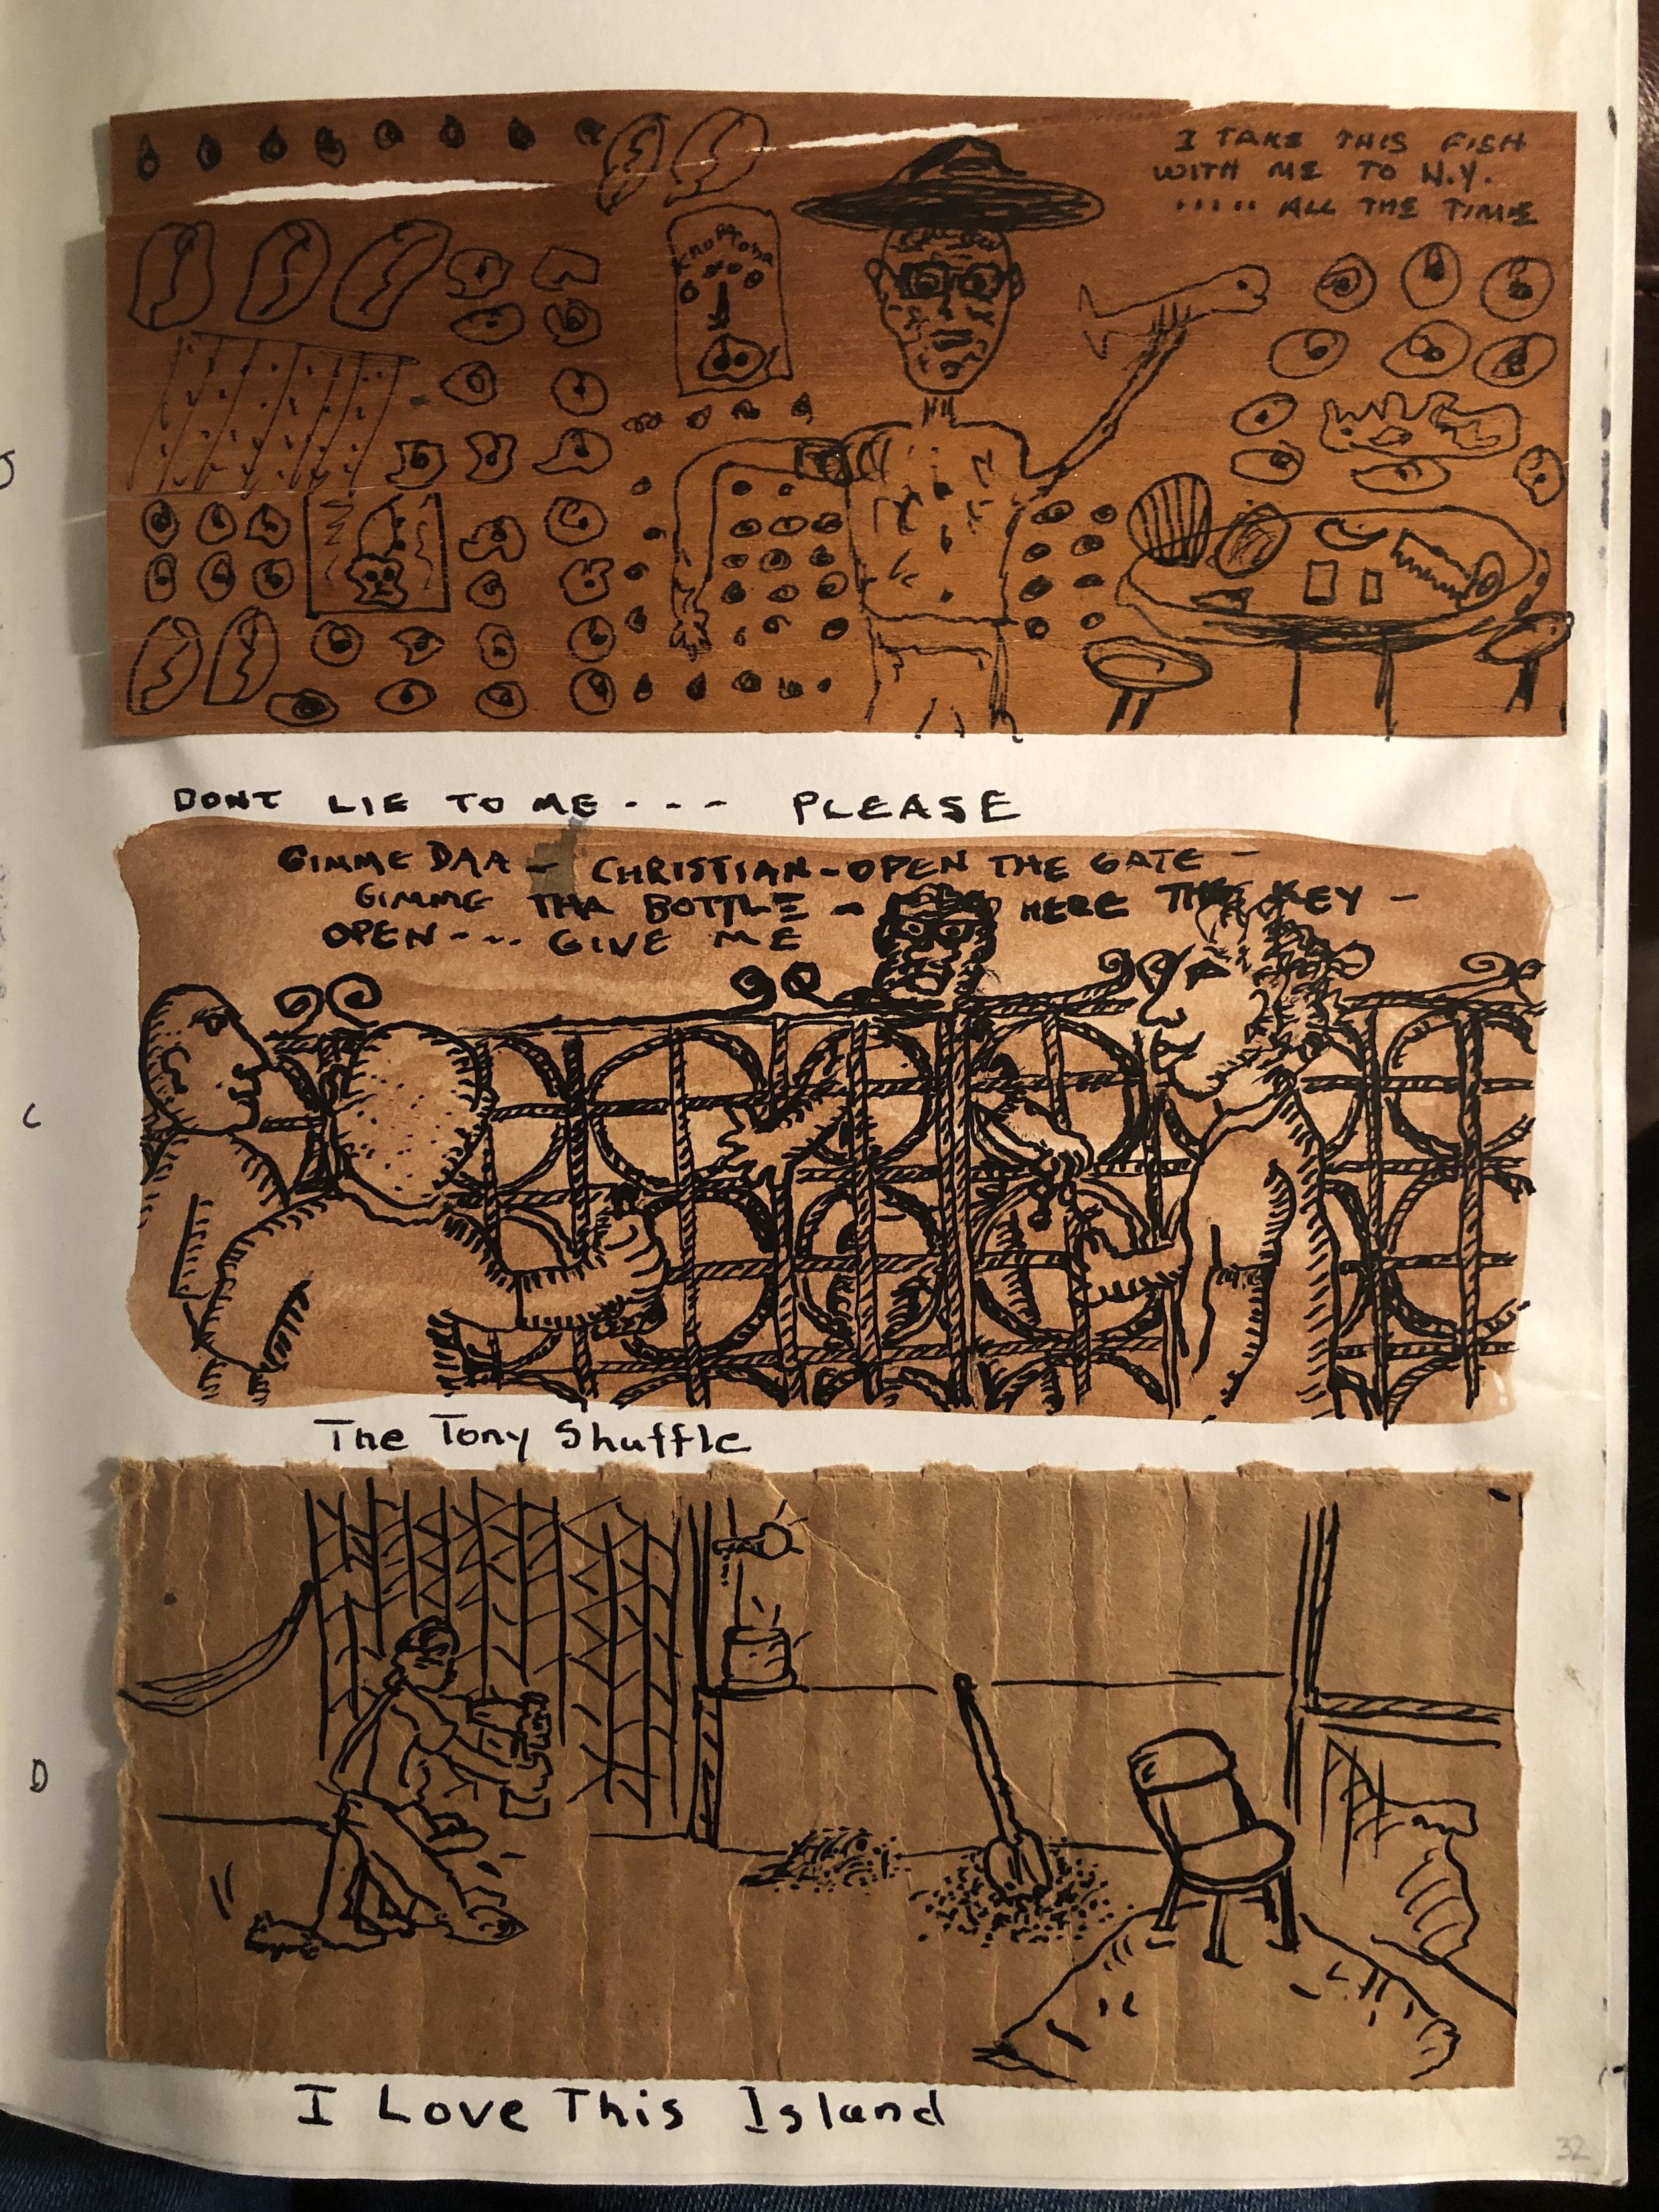 I TAKE THIS FISH
WITH ME TO N.Y.
..... ALL THE TIME
DONT LIE TO ME - - - PLEASE
GIMME DAA - CHRISTIAN - OPEN THE GATE -
GIMME THA BOTTLE - HERE THE KEY -
OPEN - - .. GIVE ME
The Tony Shuffle
I Love This Island
C
D
32